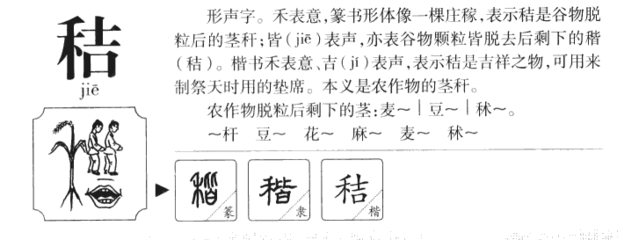 秸
jiē
形声字。禾表意,篆书形体像一棵庄稼,表示秸是谷物脱
粒后的茎秆;皆(jiē)表声,亦表谷物颗粒皆脱去后剩下的稭
(秸)。楷书禾表意、吉(jí)表声,表示秸是吉祥之物,可用来
制祭天时用的垫席。本义是农作物的茎秆。
农作物脱粒后剩下的茎:麦～｜豆～｜秫～。
～杆 豆～ 花～ 麻～ 麦～ 秫～
稭 篆
稭 隶
秸 楷